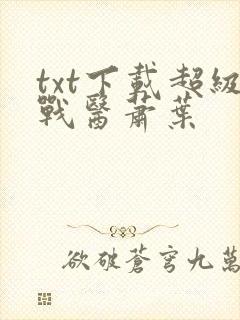 txt下載超級
戰醫蕭葉
欲破蒼穹九萬